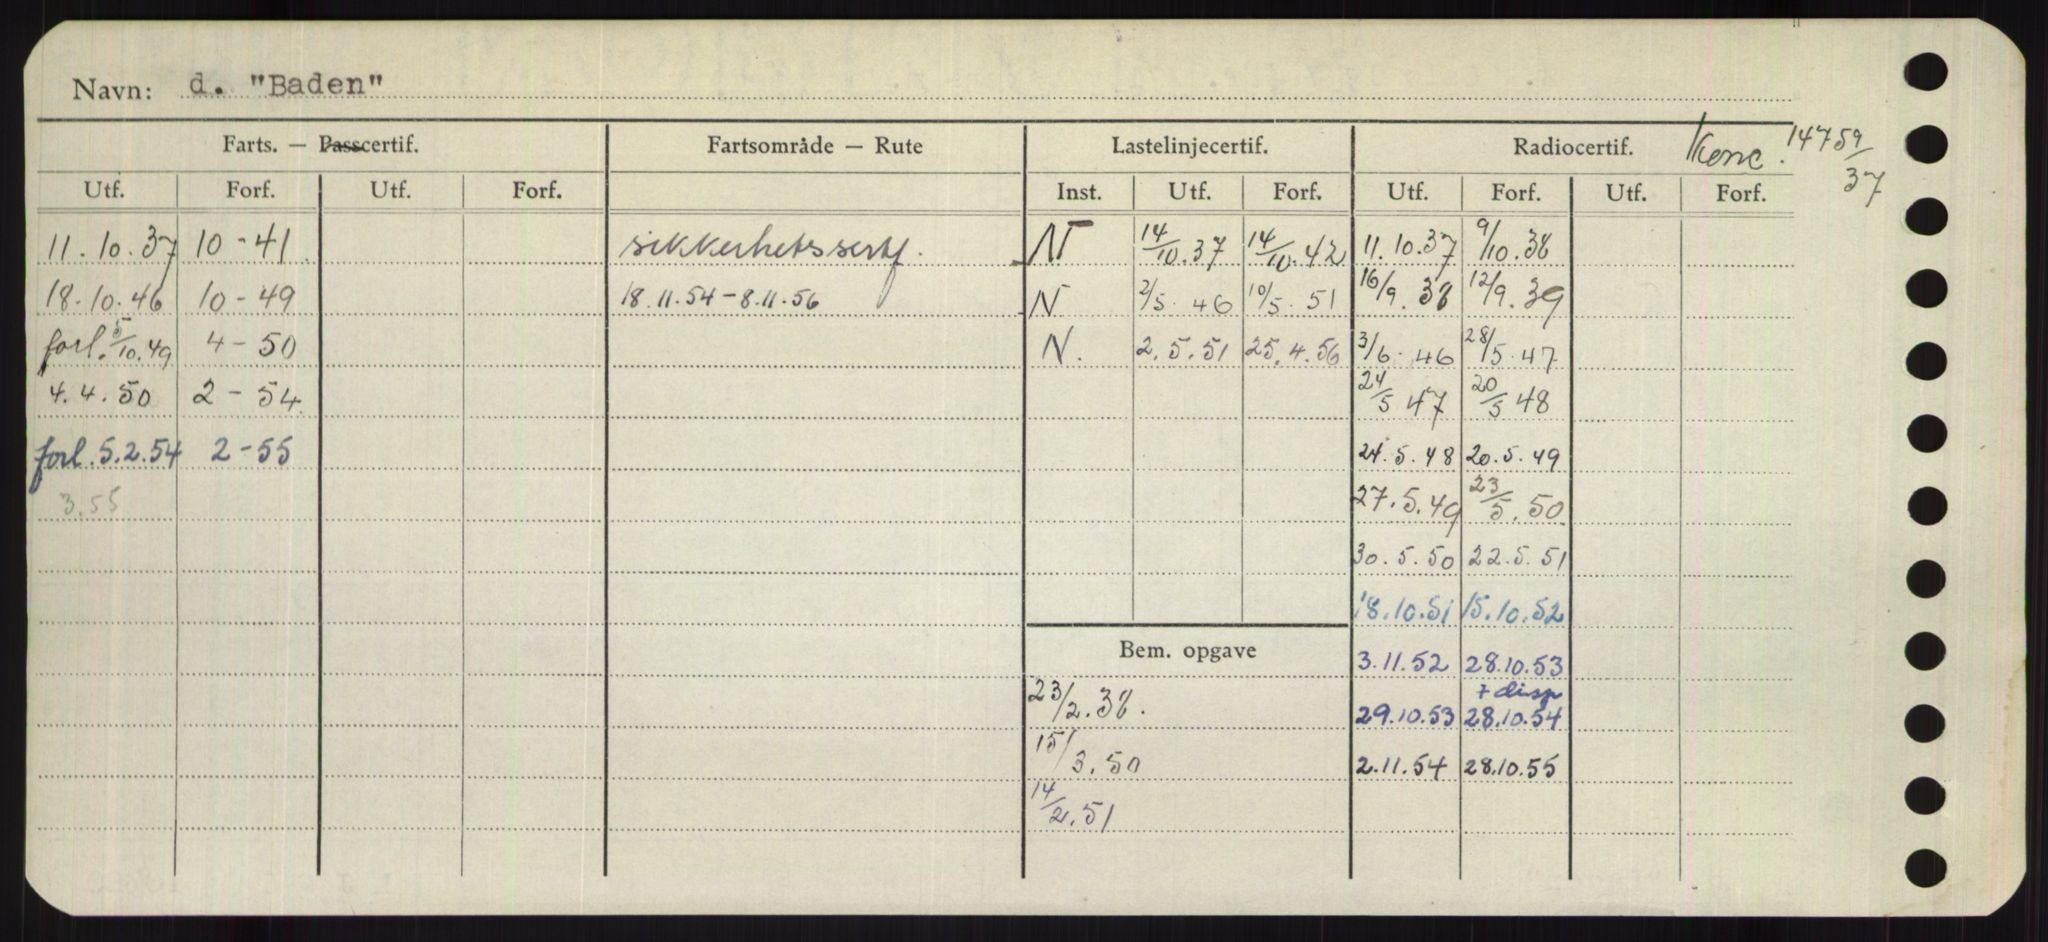 Navn: d. "Baden"
Farts. — Passcertif. Fartsområde — Rute Lastelinjecertif. Radiocertif. Konc. 14759/37
Utf. Forf. Utf. Forf. Inst. Utf. Forf. Utf. Forf. Utf. Forf.
11.10.37 10-41 sikkerhetssertf. N 14/10.37 14/10.42 11.10.37 9/10.38
18.10.46 10-49 18.11.54-8.11.56 N 2/5.46 10/5.51 16/9.38 12/9.39
forl. 5/10.49 4-50 N. 2.5.51 25.4.56 3/6.46 28/5.47
4.4.50 2-54 24/5 47 20/5 48
forl. 5.2.54 2-55 24.5.48 20.5.49
3.55 27.5.49 23/5.50
30.5.50 22.5.51
18.10.51 15.10.52
Bem. opgave 3.11.52 28.10.53
23/2.38. + disp
29.10.53 28.10.54
15/3.50 2.11.54 28.10.55
14/2.51